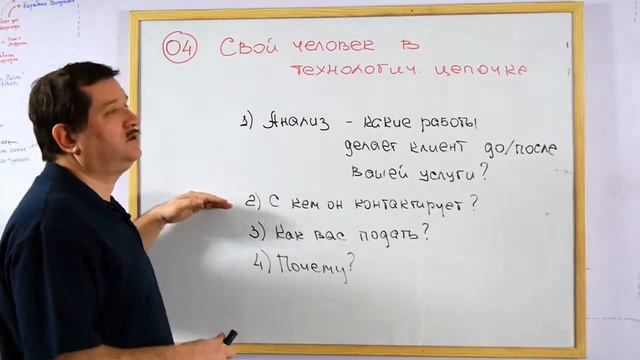 04 Свой человек в
технологич. цепочке
1) Анализ - какие работы
делает клиент до/после
вашей услуги?
2) С кем он контактирует?
3) Как вас подать?
4) Почему?